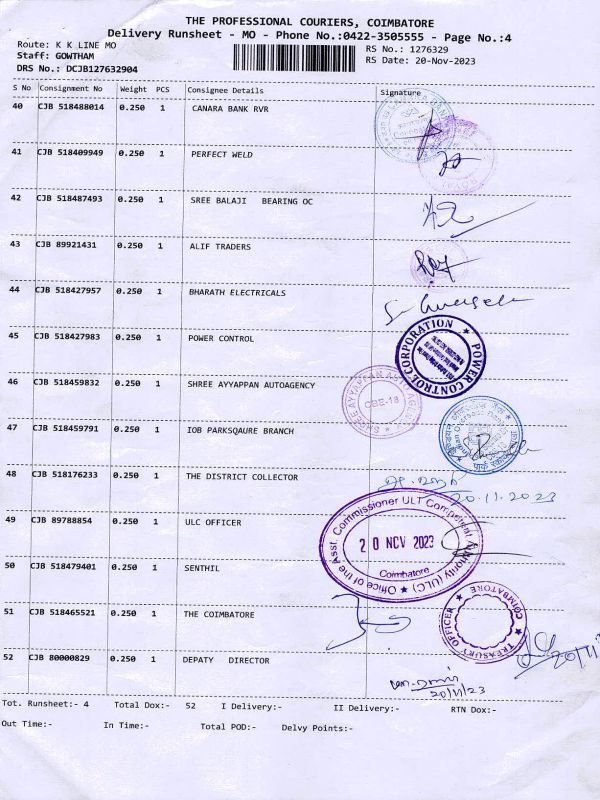 THE PROFESSIONAL COURIERS, COIMBATORE
Delivery Runsheet - MO - Phone No.:0422-3505555 - Page No.:4
Route: K K LINE MO
RS No.: 1276329
Staff: GOWTHAM
RS Date: 20-Nov-2023
DRS No.: DCJB127632904
S No Consignment No Weight PCS Consignee Details Signature
40 CJB 518488014 0.250 1 CANARA BANK RVR
41 CJB 518409949 0.250 1 PERFECT WELD
42 CJB 518487493 0.250 1 SREE BALAJI BEARING OC
43 CJB 89921431 0.250 1 ALIF TRADERS
44 CJB 518427957 0.250 1 BHARATH ELECTRICALS
45 CJB 518427983 0.250 1 POWER CONTROL
POWER CONTROL CORPORATION
46 CJB 518459832 0.250 1 SHREE AYYAPPAN AUTOAGENCY
CBE-18
47 CJB 518459791 0.250 1 IOB PARKSQAURE BRANCH
48 CJB 518176233 0.250 1 THE DISTRICT COLLECTOR
20.11.2023
49 CJB 89788854 0.250 1 ULC OFFICER
Office of the Asst. Commissioner ULT Competent Authority (ULC)
20 NOV 2023
Coimbatore
50 CJB 518479401 0.250 1 SENTHIL
51 CJB 518465521 0.250 1 THE COIMBATORE
TREASURY OFFICER COIMBATORE
20/11
52 CJB 80000829 0.250 1 DEPATY DIRECTOR
20/11/23
Tot. Runsheet:- 4 Total Dox:- 52 I Delivery:- II Delivery:- RTN Dox:-
Out Time:- In Time:- Total POD:- Delvy Points:-